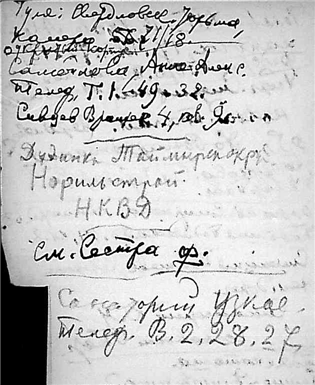 Гуля: Свердловск. Тюрьма,
камера 71/18.
Самойлова, Анна Алекс.
Телеф. Т. 1. 49-32.
Сивцев Вражек 4, кв.
Дудинка Таймырск. окр.
Норильстрой.
НКВД
см. Сестра ф.
Санаторий Узкое.
телеф. В. 2. 28. 27